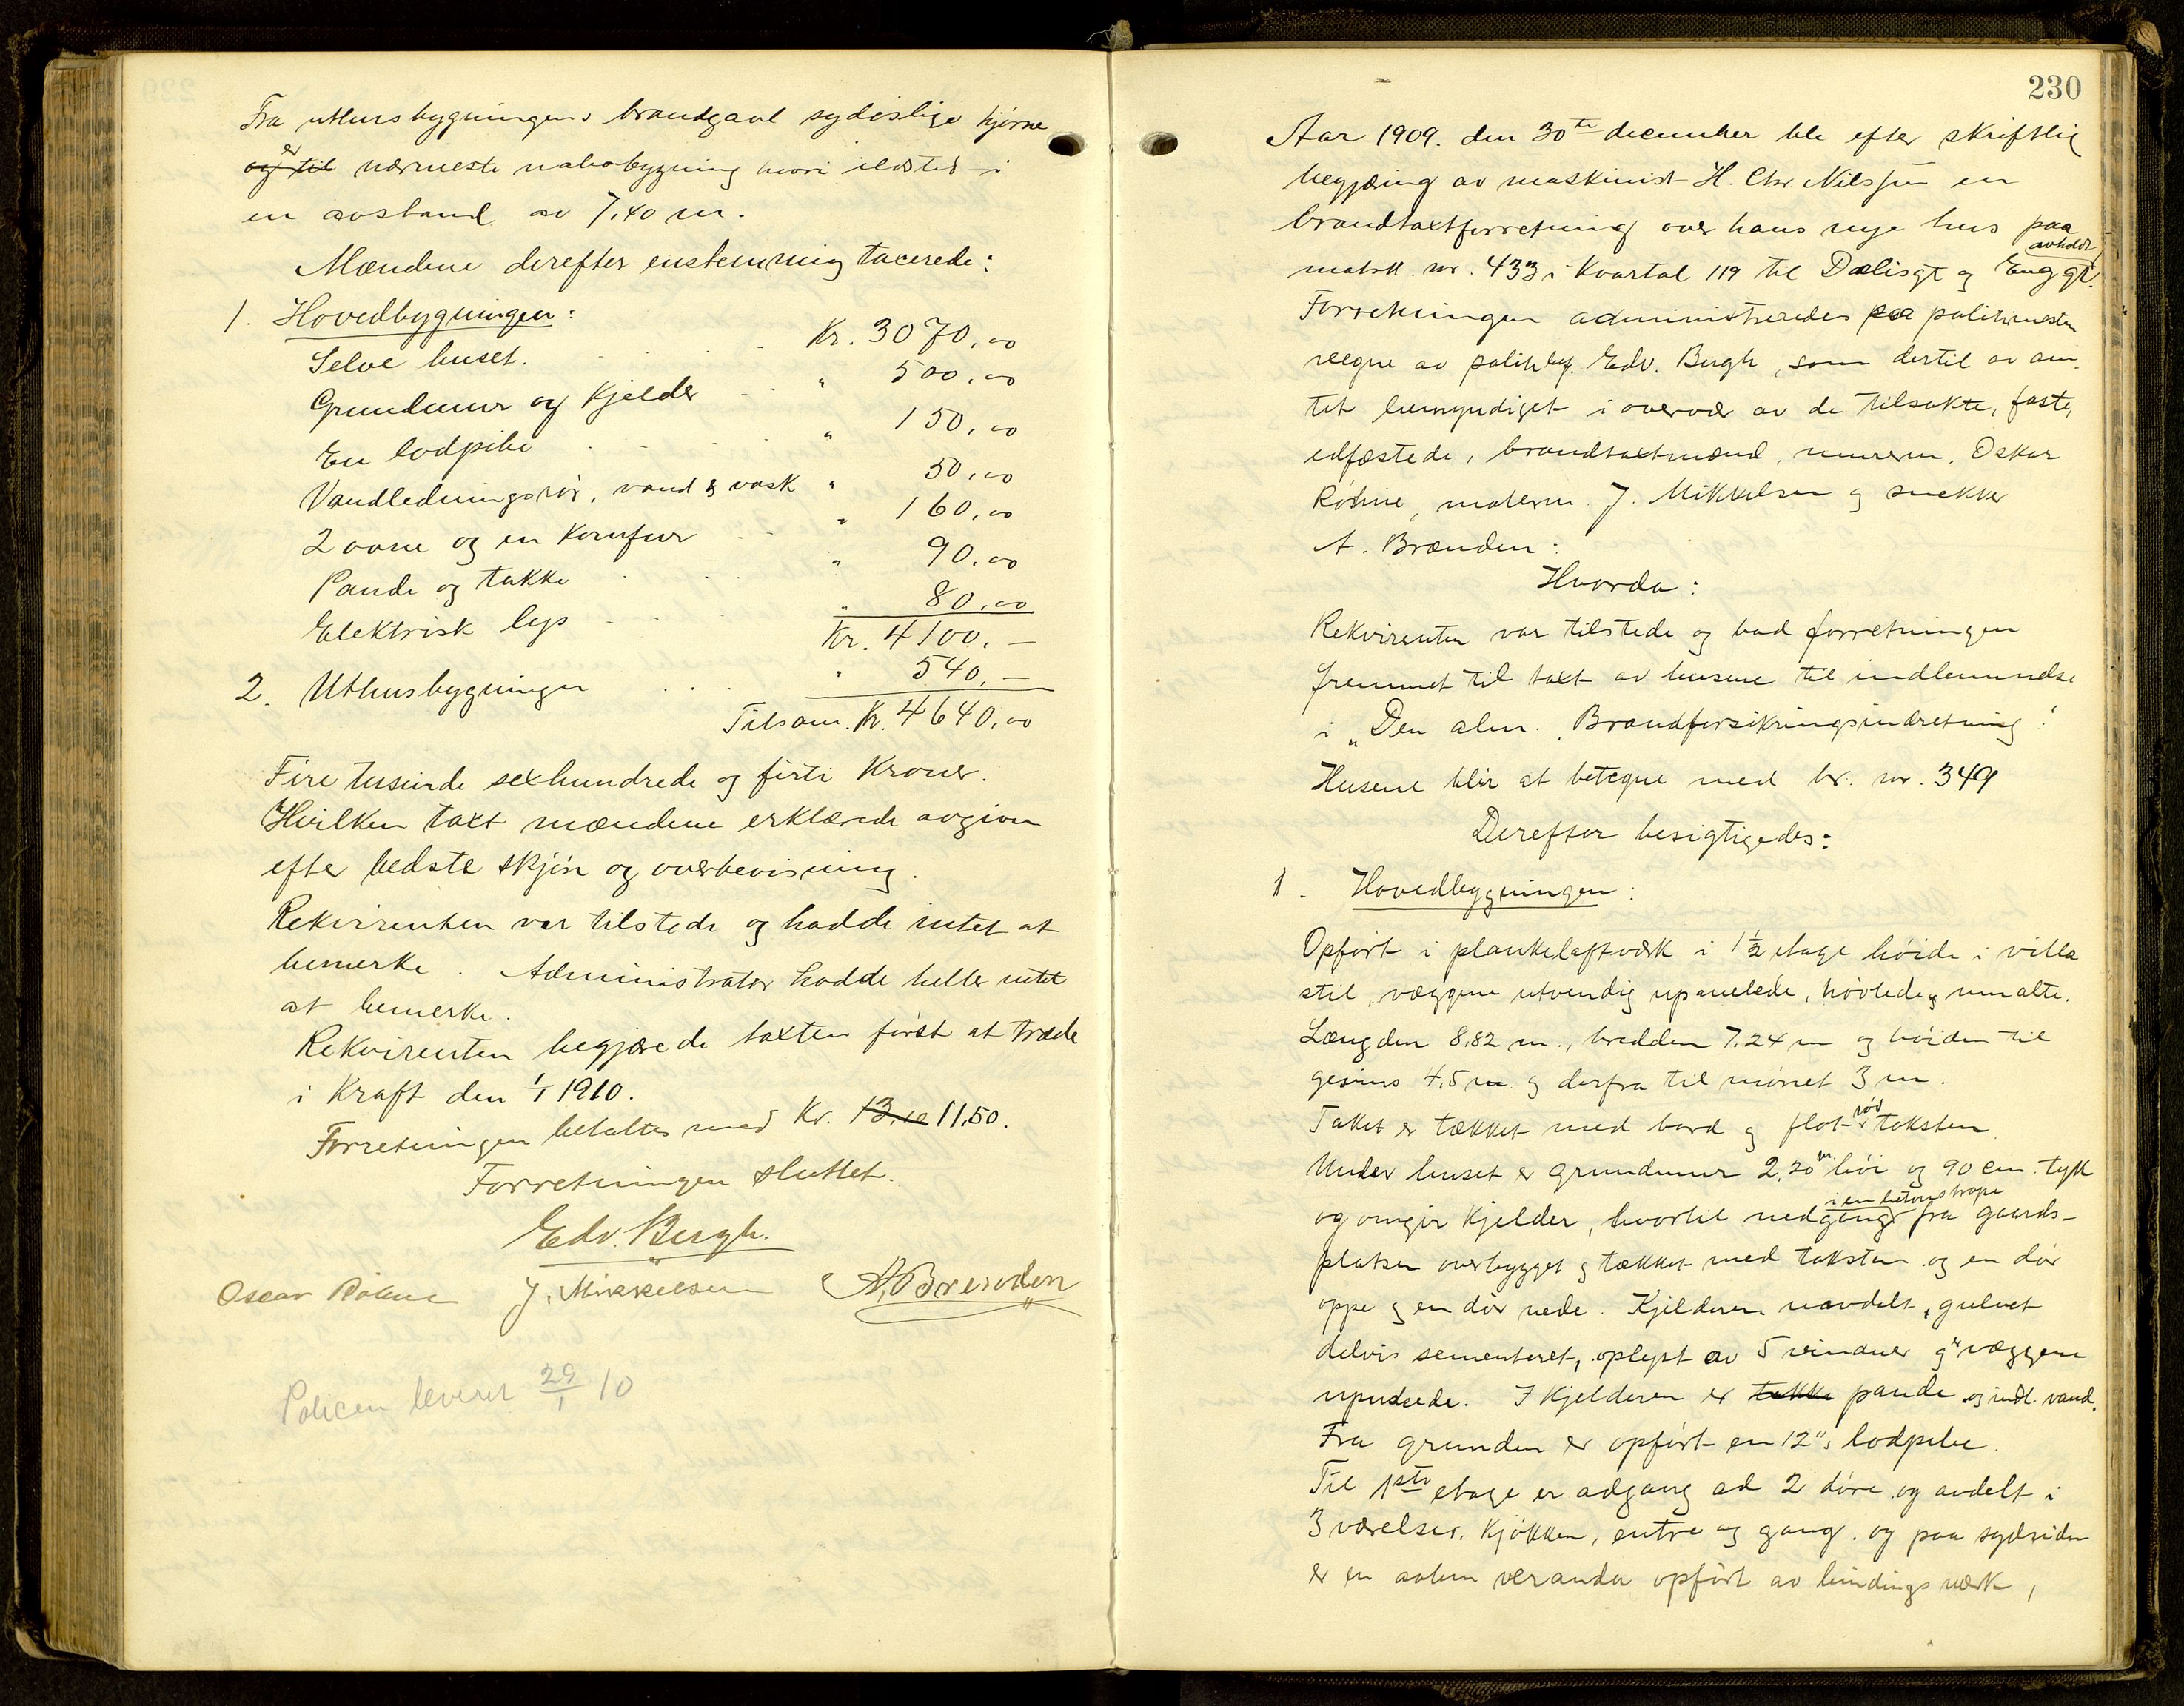 Fra uthusbygningens brandgavl sydøstlige hjørne
er
og til nærmeste nabobygning hvori ildsted i
en avstand av 7,40 m.
Mændene derefter enstemmig taxerede:
1. Hovedbygningen:
Selve huset. Kr. 3070,00
Grundmur og kjelder " 500,00
En lodpibe " 150,00
Vandledningsrør, vand & vask " 50,00
2 ovne og en komfur " 160,00
Pande og takke " 90,00
Elektrisk lys " 80,00
Kr. 4100,-
2. Uthusbygningen " 540,-
Tilsam. Kr. 4640,00
Fire tusinde sexhundrede og firti Kroner.
Hvilken taxt mændene erklærede avgiven
efter bedste skjøn og overbevisning.
Rekvirenten var tilstede og hadde intet at
bemerke. Administrator hadde heller intet
at bemerke.
Rekvirenten begjærede taxten først at træde
i Kraft den 1/1 1910.
Forretningen betaltes med Kr. 13,10 11,50.
Forretningen sluttet.
Edv. Bergh.
Oscar Röhne J. Mikkelsen A. Brænden
Policen leveret 29/1 10
230
Aar 1909. den 30te december ble efter skriftlig
begjæring av maskinist H. Chr. Nilssen en
brandtaxtforretning over hans nye hus paa
avholdt
matrk. nr. 433 i Kvartal 119 til Dælisgt og Enggt.
Forretningen administreredes paa politimesten
vegne av politibtj. Edv. Bergh, som dertil av am-
tet bemyndiget i overvær av de tilsakte, faste,
edfæstede, brandtaxtmænd, murerm. Oskar
Röhne, malerm. J. Mikkelsen og snekker
A. Brænden:
Hvorda:
Rekvirenten var tilstede og bad forretningen
fremmet til taxt av husene til indlemmelse
i „Den alm. Brandforsikringsindretning".
Husene blir at betegne med br. nr. 349
Derefter besigtigedes:
1. Hovedbygningen:
Opført i plankelaftverk i 1½ etage høide i villa
stil, væggene utvendig upanelede, høvlede & umalte.
Længden 8,82 m., bredden 7,24 m og høiden til
gesims 4,5 m. og derfra til mønet 3 m.
rød
Taket er tækket med bord og flat taksten.
Under huset er grundmur 2,20 m høi og 90 cm. tyk
i en betonstrape
og omgir Kjelder, hvortil nedgang fra gaards-
plassen overbygget og tækket med taksten og en dør
oppe og en dør nede. Kjelderen uavdelt, gulvet
delvis sementeret, oplyst av 5 vinduer og er væggene
upudsede. I kjelderen er takke pande og indl. vand.
Fra grunden er opført en 12"s lodpibe.
Til 1ste etage er adgang ad 2 døre og avdelt i
3 værelser, kjøkken, entre og gang. og paa sydsiden
er en aaben veranda opført av bindingsverk,